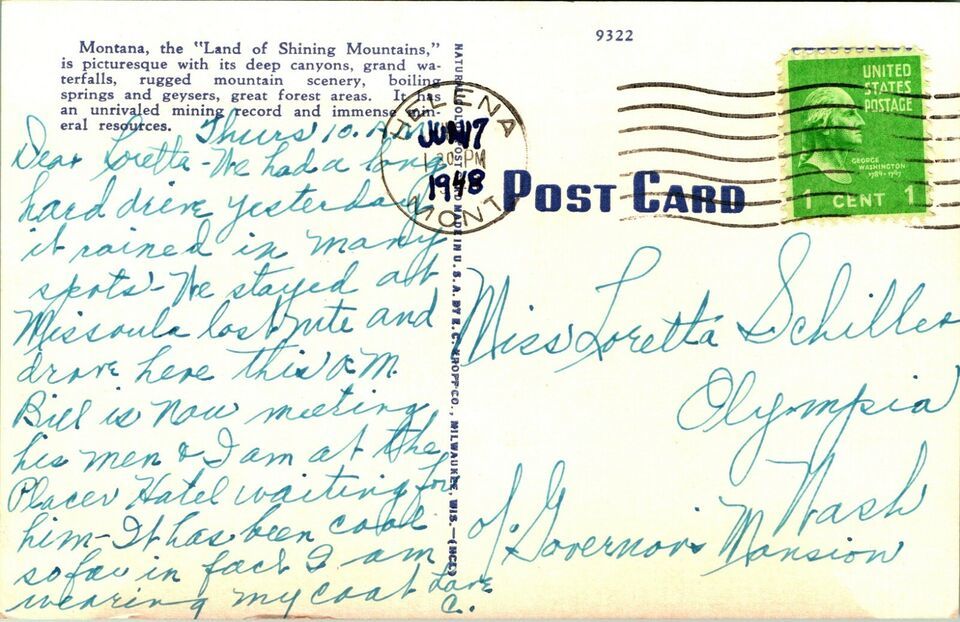 Montana, the "Land of Shining Mountains,"
is picturesque with its deep canyons, grand wa-
terfalls, rugged mountain scenery, boiling
springs and geysers, great forest areas. It has
an unrivaled mining record and immense min-
eral resources.
Thurs 10. A.M
Dear Loretta - We had a long
hard drive yesterday
it rained in many
spots - We stayed at
Missoula last nite and
drove here this A.M.
Bill is now meeting
his men & I am at the
Placer Hotel waiting for
him - It has been cool
so far in fact I am
wearing my coat Love
C.
NATURAL COLOR POST CARD MADE IN U.S.A. BY E. C. KROPP CO., MILWAUKEE, WIS.—(INC.)
9322
HELENA
JUN 17
PM
1948
MONT
POST CARD
UNITED
STATES
POSTAGE
GEORGE
WASHINGTON
1789-1797
1 CENT 1
Miss Loretta Schiller
Olympia
Wash
c/o Governor's Mansion